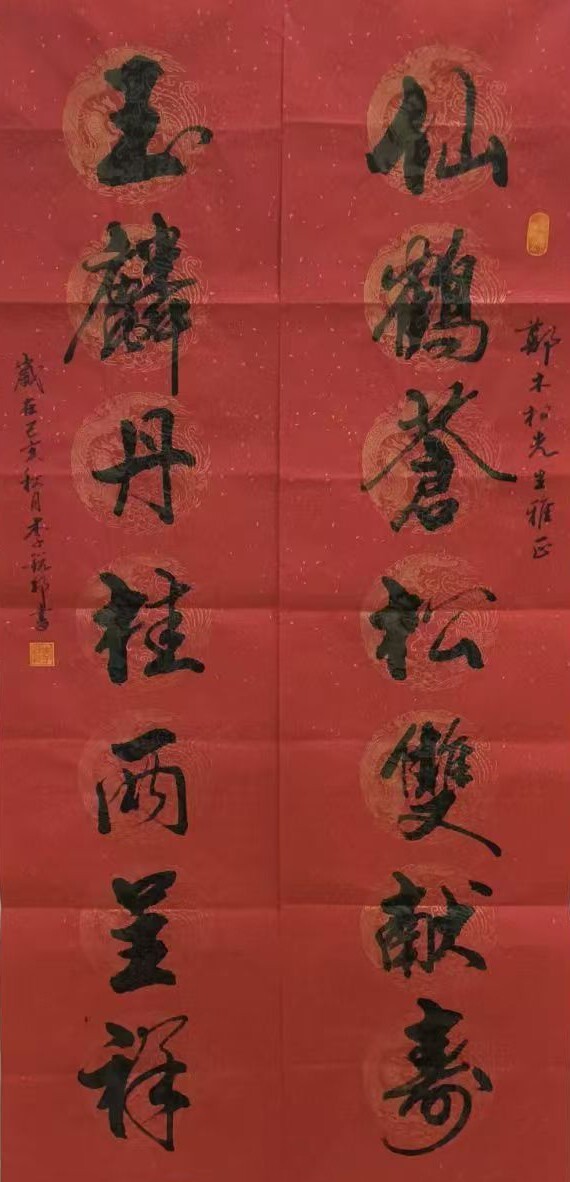 鄭木松先生雅正
仙鶴蒼松雙献壽
玉麟丹桂兩呈祥
歲在己亥秋月李